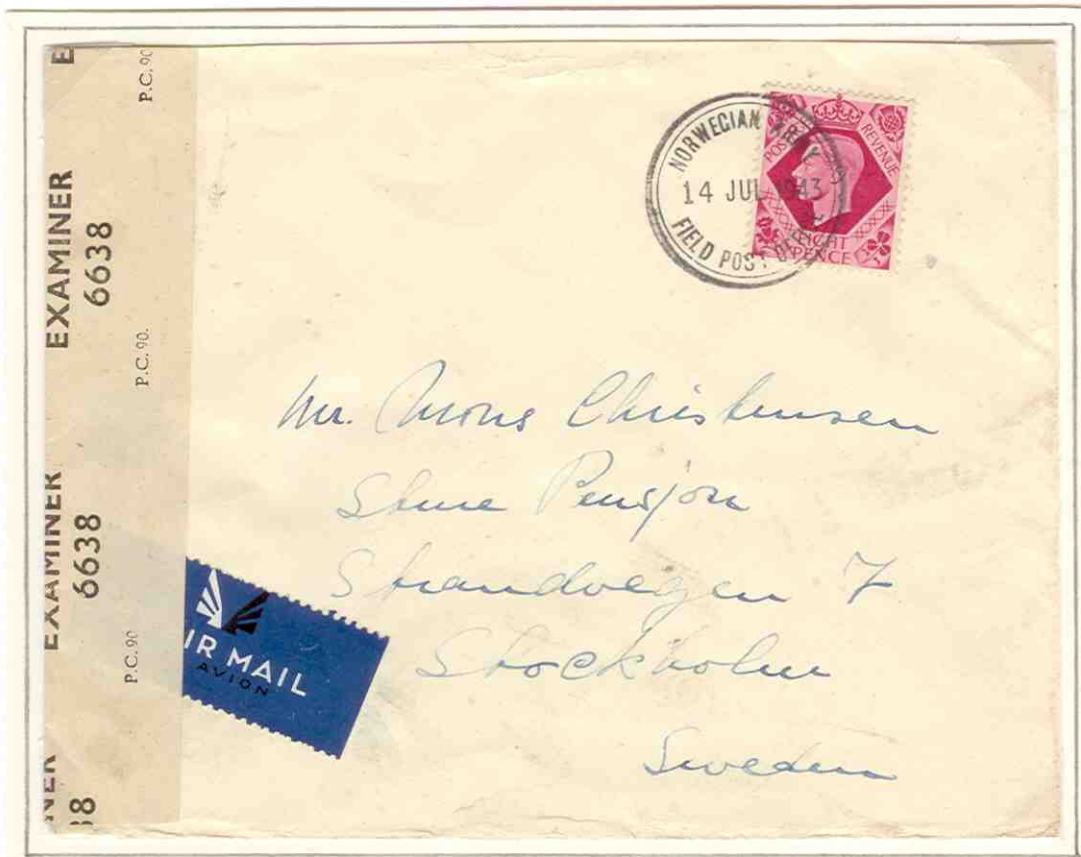 EXAMINER
6638
EXAMINER
6638
NER
38
E
P.C. 90
P.C. 90.
P.C. 90
NORWEGIAN ARMY
14 JUL 1943
FIELD POST OFFICE
POSTAGE REVENUE
EIGHT
PENCE
Mr. Mons Christensen
Sture Pensjon
Strandvegen 7
Stockholm
Sweden
IR MAIL
AVION